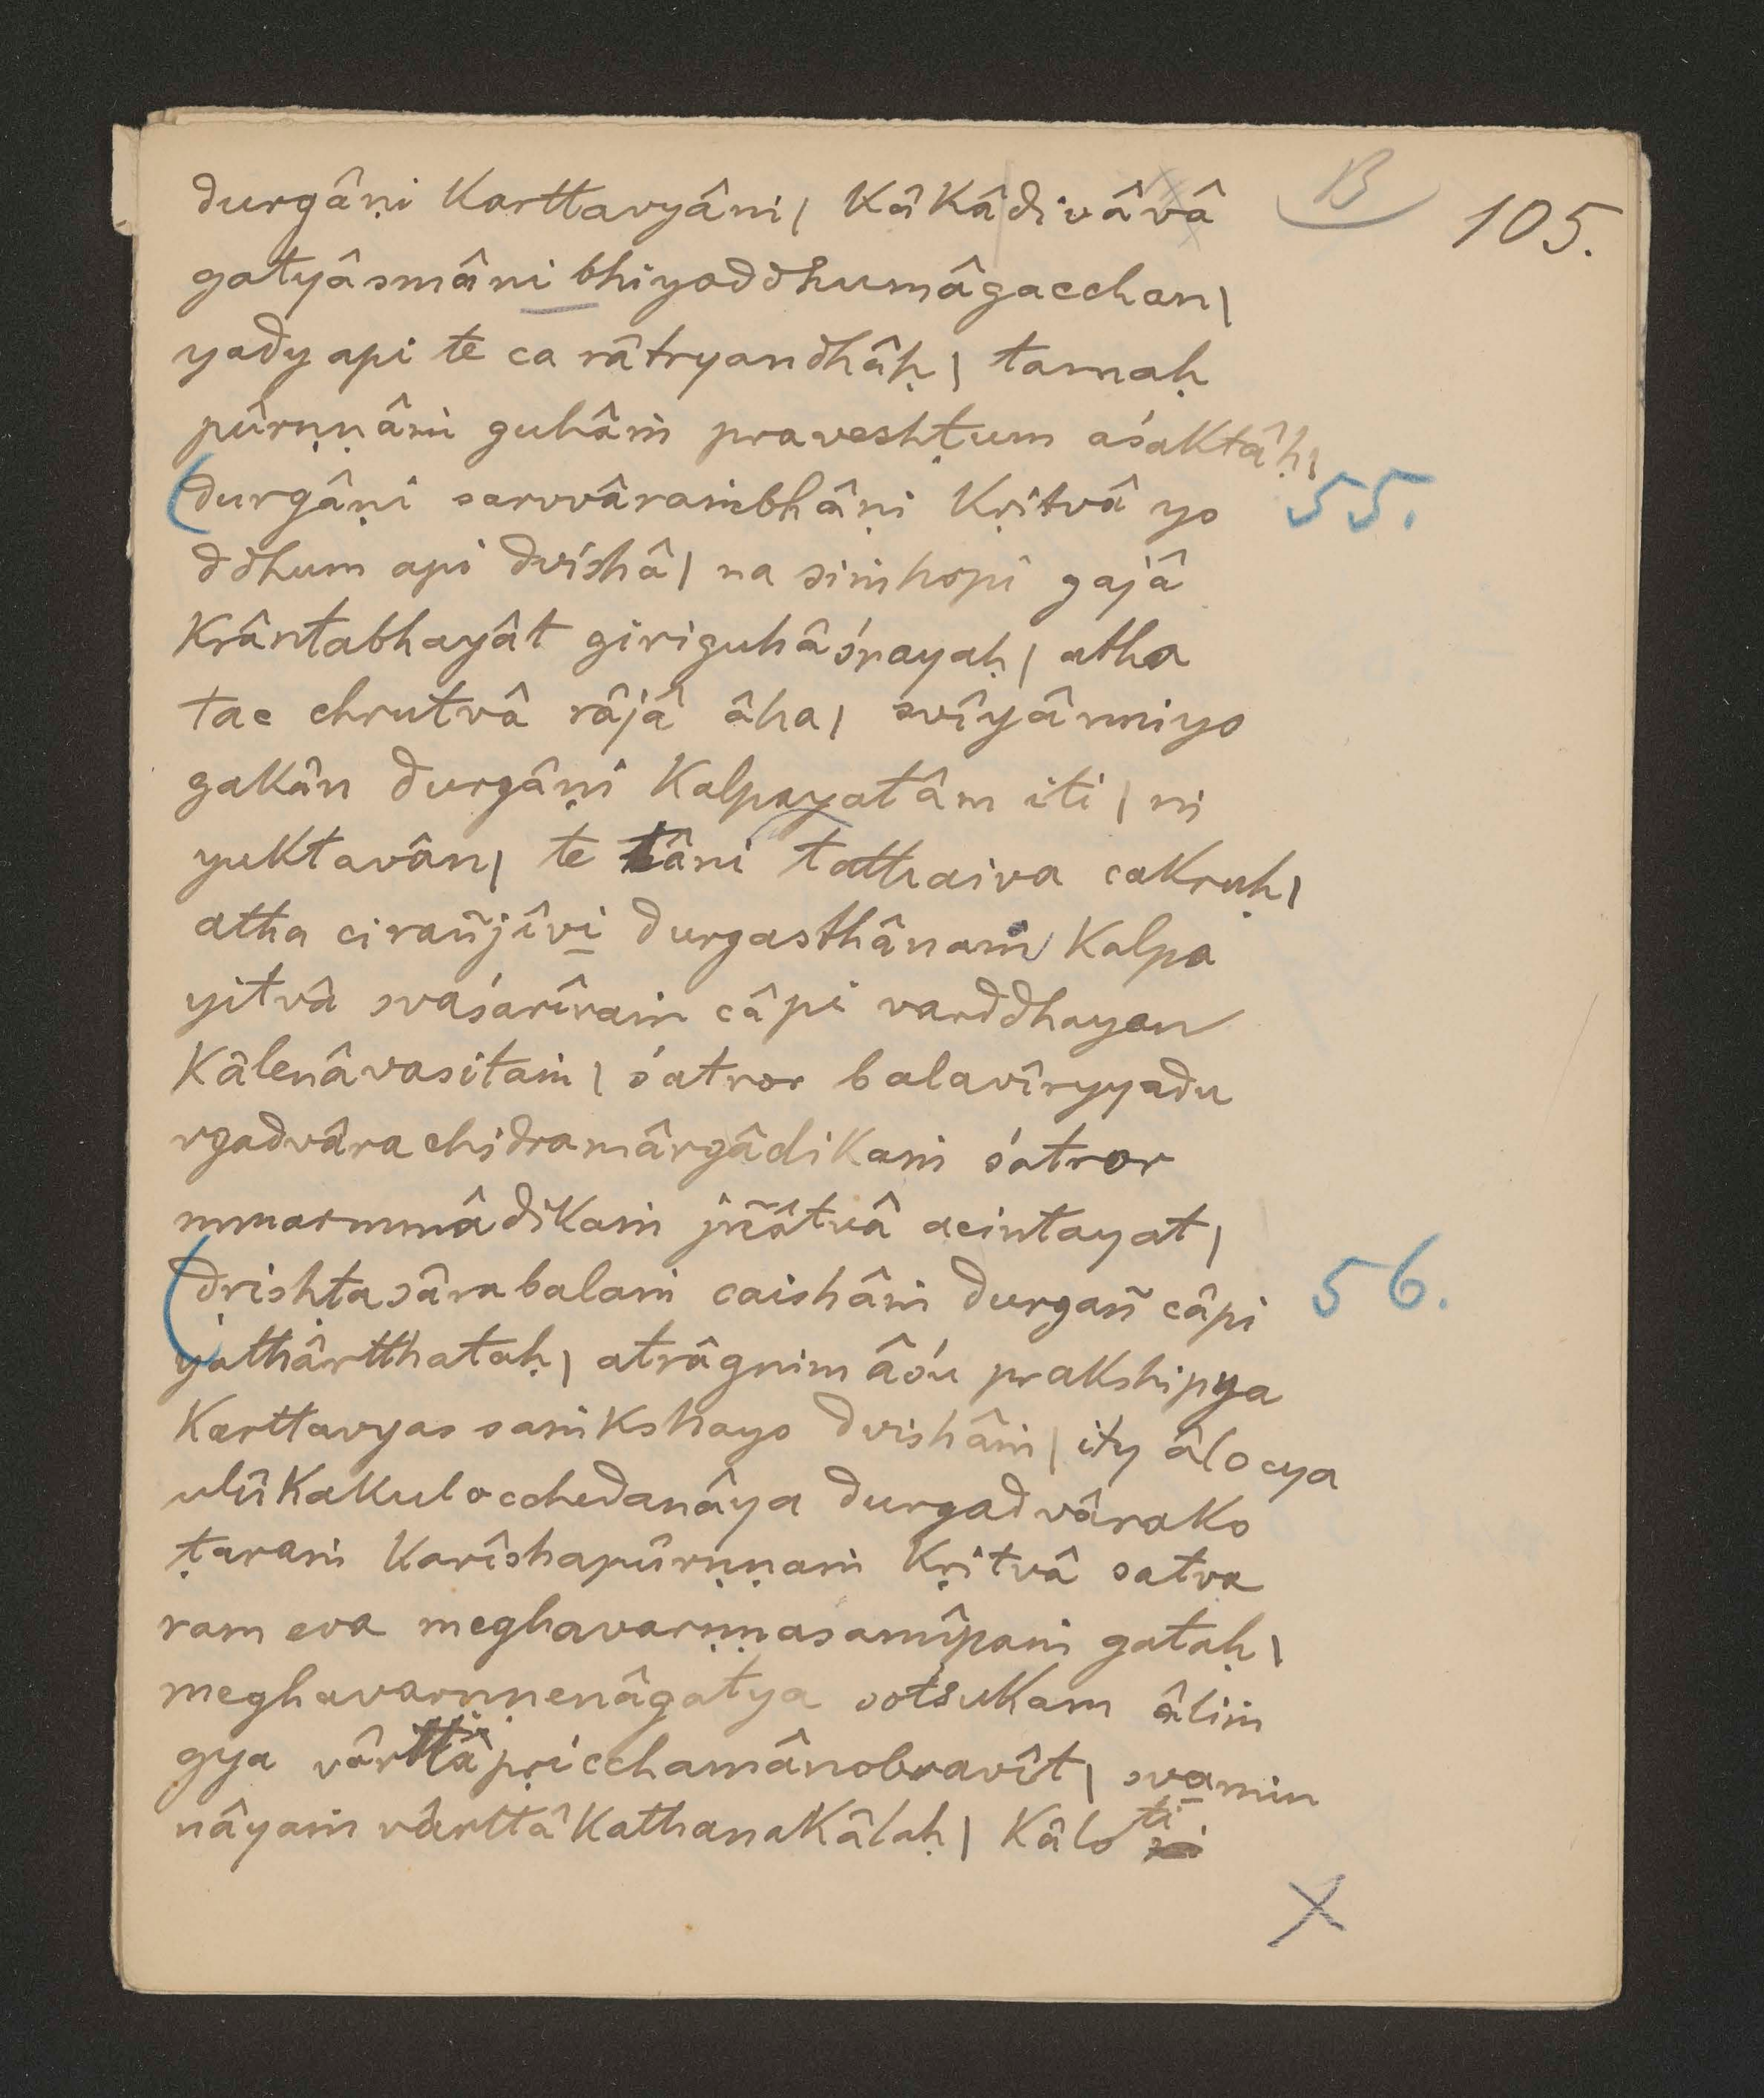 B 105.
durgâṇi karttavyâni | kâkâ|divâvâ
gatyâsmâni bhiyoddhumâgacchan |
yady api te ca râtryandhâḥ | tamaḥ
pûrṇṇâṁ guhâṁ praveshṭum aśaktâḥ |
(durgâṇi sarvvâraṁbhâṇi kṛitvâ yo 55.
ddhum api dvishâ | na siṁhopi gajâ
krântabhayât giriguhâśrayaḥ | atha
tac chrutvâ râjâ âha | svîyânniyo
gakân durgâṇi kalpayatâm iti | ni
yuktavân | te tâni tathaiva cakruḥ |
atha cirañjîvi durgasthânaṁ kalpa
yitvâ svaśarîraṁ câpi varddhayan
kâlenâvasitaṁ | śatror balavîryyadu
rgadvârachidramârgâdikaṁ śatror
mmarmmâdikaṁ jñâtvâ acintayat |
(dṛishṭasârabalaṁ caishâṁ durgañ câpi 56.
yathârtthataḥ | atrâgnim âśu prakshipya
karttavyas saṁkshayo dvishâṁ | ity âlocya
ulûkakulocchedanâya durgadvârako
ṭaraṁ karîshapûrṇṇaṁ kṛitvâ satva
ram eva meghavarṇṇasamîpaṁ gataḥ |
meghavarṇṇenâgatya sotsukam âliṁ
gya vârttâṁ pṛicchamânobravît | svamin
nâyaṁ vârttâkathanakâlaḥ | kâlo ti
X